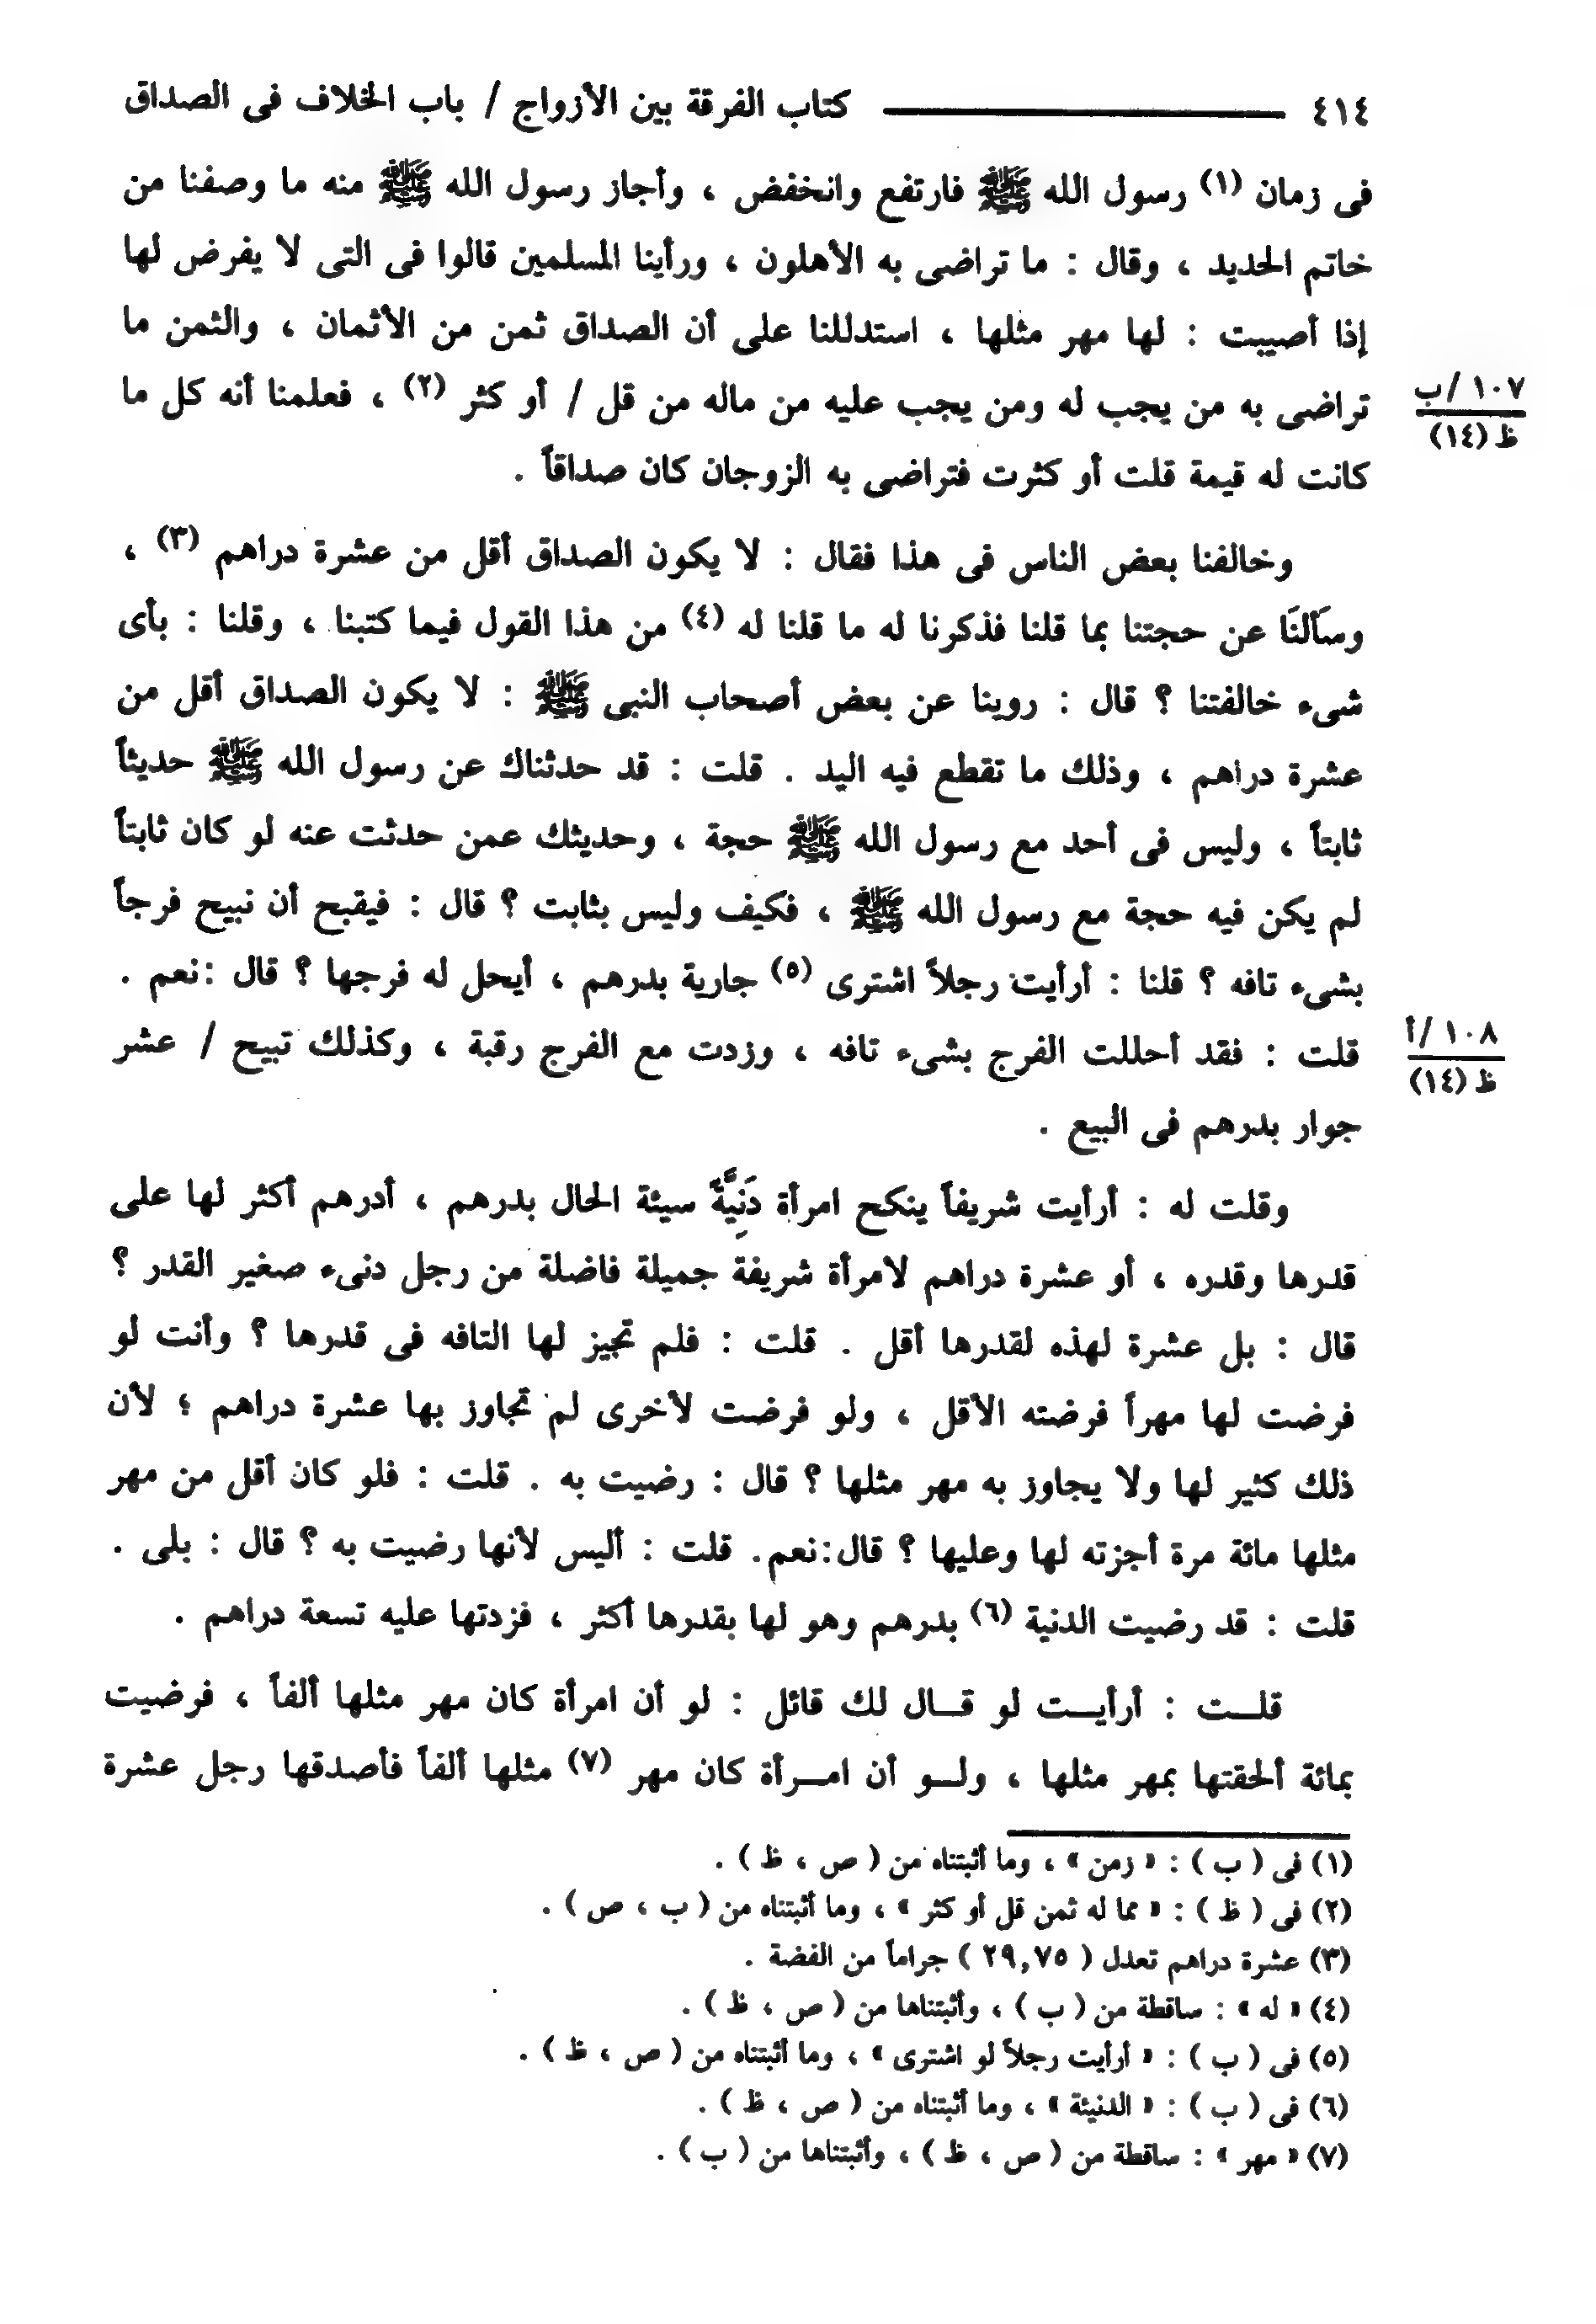 ٤١٤ ــــــــــ كتاب الفرقة بين الأزواج / باب الخلاف فى الصداق
فى زمان (١) رسول الله ﷺ فارتفع وانخفض ، وأجاز رسول الله ﷺ منه ما وصفنا من
خاتم الحديد ، وقال : ما تراضى به الأهلون ، ورأينا المسلمين قالوا فى التى لا يفرض لها
إذا أصيبت : لها مهر مثلها ، استدللنا على أن الصداق ثمن من الأثمان ، والثمن ما
تراضى به من يجب له ومن يجب عليه من ماله من قل / أو كثر (٢) ، فعلمنا أنه كل ما
١٠٧/ب
ظ (١٤)
كانت له قيمة قلت أو كثرت فتراضى به الزوجان كان صداقاً .
وخالفنا بعض الناس فى هذا فقال : لا يكون الصداق أقل من عشرة دراهم (٣) ،
وسَألنَا عن حجتنا بما قلنا فذكرنا له ما قلنا له (٤) من هذا القول فيما كتبنا ، وقلنا : بأى
شىء خالفتنا ؟ قال : روينا عن بعض أصحاب النبى ﷺ : لا يكون الصداق أقل من
عشرة دراهم ، وذلك ما تقطع فيه اليد . قلت : قد حدثناك عن رسول الله ﷺ حديثاً
ثابتاً ، وليس فى أحد مع رسول الله ﷺ حجة ، وحديثك عمن حدثت عنه لو كان ثابتاً
لم يكن فيه حجة مع رسول الله ﷺ ، فكيف وليس بثابت ؟ قال : فيقبح أن نبيح فرجاً
بشىء تافه ؟ قلنا : أرأيت رجلاً اشترى (٥) جارية بدرهم ، أيحل له فرجها ؟ قال :نعم .
قلت : فقد أحللت الفرج بشىء تافه ، وزدت مع الفرج رقبة ، وكذلك تبيح / عشر
١٠٨/أ
ظ (١٤)
جوار بدرهم فى البيع .
وقلت له : أرأيت شريفاً ينكح امرأة دَنِيَّةً سيئة الحال بدرهم ، أدرهم أكثر لها على
قدرها وقدره ، أو عشرة دراهم لامرأة شريفة جميلة فاضلة من رجل دنىء صغير القدر ؟
قال : بل عشرة لهذه لقدرها أقل . قلت : فلم تجيز لها التافه فى قدرها ؟ وأنت لو
فرضت لها مهراً فرضته الأقل ، ولو فرضت لأخرى لم تجاوز بها عشرة دراهم ؛ لأن
ذلك كثير لها ولا يجاوز به مهر مثلها ؟ قال : رضيت به . قلت : فلو كان أقل من مهر
مثلها مائة مرة أجزته لها وعليها ؟ قال:نعم. قلت : أليس لأنها رضيت به ؟ قال : بلى .
قلت : قد رضيت الدنية (٦) بدرهم وهو لها بقدرها أكثر ، فزدتها عليه تسعة دراهم .
قلــت : أرأيــت لو قــال لك قائل : لو أن امرأة كان مهر مثلها ألفاً ، فرضيت
بمائة ألحقتها بمهر مثلها ، ولــو أن امــرأة كان مهر (٧) مثلها ألفاً فأصدقها رجل عشرة
(١) فى ( ب ) : « زمن » ، وما أثبتناه من ( ص ، ظ ) .
(٢) فى ( ظ ) : « مما له ثمن قل أو كثر » ، وما أثبتناه من ( ب ، ص ) .
(٣) عشرة دراهم تعدل ( ٢٩,٧٥ ) جراماً من الفضة .
(٤) « له » : ساقطة من ( ب ) ، وأثبتناها من ( ص ، ظ ) .
(٥) فى ( ب ) : « أرأيت رجلاً لو اشترى » ، وما أثبتناه من ( ص ، ظ ) .
(٦) فى ( ب ) : « الدنيئة » ، وما أثبتناه من ( ص ، ظ ) .
(٧) « مهر » : ساقطة من ( ص ، ظ ) ، وأثبتناها من ( ب ) .